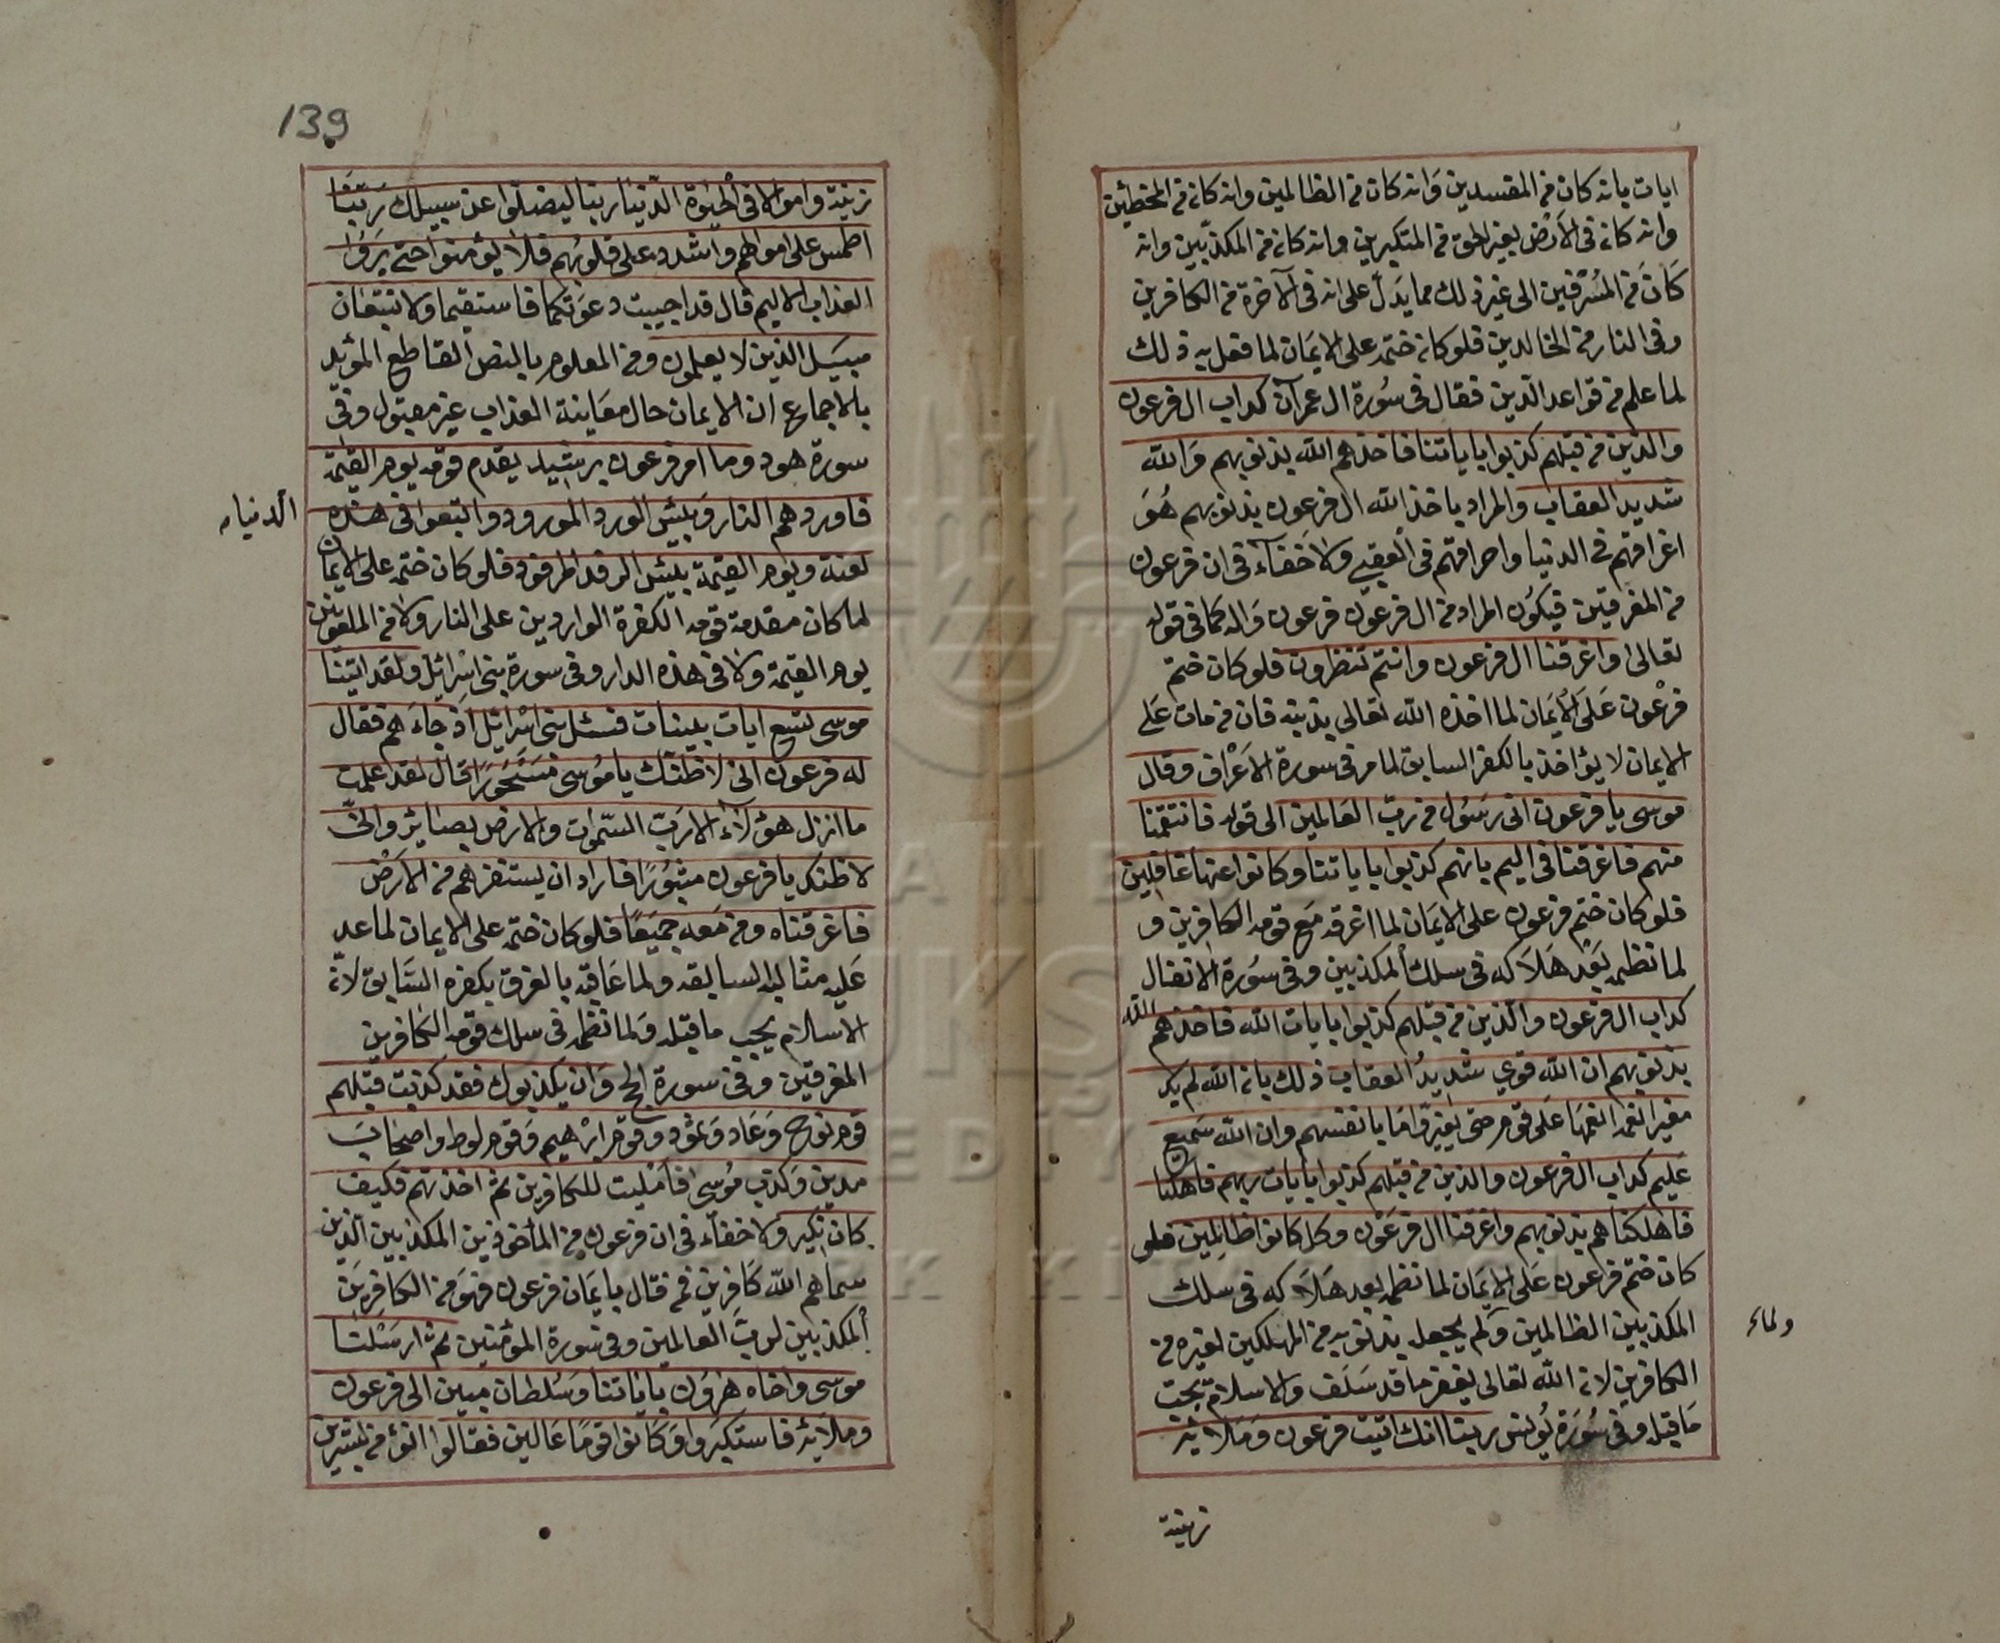 ايات بانه كان من المفسدين وانه كان من الظالمين وانه كان من المخطئين
وانه كان فى الارض بغير الحق من المتكبرين وانه كان من المكذبين وانه
كان من المسرفين الى غير ذلك مما يدل على انه فى الآخرة من الكافرين
وفى النار من الخالدين فلو كان ختم على الايمان لما فعل به ذلك
لما علم من قواعد الدين فقال فى سورة ال عمرآن كداب ال فرعون
والذين من قبلهم كذبوا باياتنا فاخذهم الله بذنوبهم والله
شديد العقاب والمراد باخذ الله ال فرعون بذنوبهم هو
اغراقهم فى الدنيا واحراقهم فى العقبى ولا خفآء فى ان فرعون
من المغرقين فيكون المراد من ال فرعون فرعون واله كما فى قوله
تعالى واغرقنا ال فرعون وانتم تنظرون فلو كان ختم
فرعون على الايمان لما اخذه الله تعالى بذنبه فان من مات على
الايمان لا يؤاخذ بالكفر السابق لما مر فى سورة الاعراف وقال
موسى يا فرعون انى رسول من رب العالمين الى قوله فانتقمنا
منهم فاغرقنا فى اليم بانهم كذبوا باياتنا وكانوا عنها غافلين
فلو كان ختم فرعون على الايمان لما اغرقه مع قومه الكافرين و
لما نظمه بعد هلاكه فى سلك المكذبين وفى سورة الانفال
كداب ال فرعون والذين من قبلهم كذبوا بايات الله فاخذهم الله
بذنوبهم ان الله قوى شديد العقاب ذلك بان الله لم يك
مغيرا نعمة انعمها على قوم حتى يغيروا ما بانفسهم وان الله سميع
عليم كداب ال فرعون والذين من قبلهم كذبوا بايات ربهم فاهلكنا
فاهلكناهم بذنوبهم واغرقنا ال فرعون وكل كانوا ظالمين فلو
كان ختم فرعون على الايمان لما نظمه بعد هلاكه فى سلك
المكذبين الظالمين ولم يجعل بذنوبه من المهلكين لغيره من
ولماء
الكافرين لان الله تعالى يغفر ما قد سلف والاسلام يجب
ما قبله وفى سورة يونس ربنا انك اتيت فرعون وملائه
زينة
139
زينة واموالا فى الحيوة الدنيا ربنا ليضلوا عن سبيلك ربنا
اطمس على اموالهم واشدد على قلوبهم فلا يؤمنوا حتى يروا
العذاب الاليم قال قد اجيبت دعوتكما فاستقيما ولا تتبعان
سبيل الذين لا يعلمون ومن المعلوم بالنص القاطع المؤيد
بالاجماع ان الايمان حال معاينة العذاب غير مقبول وفى
سورة هود وما امر فرعون برشيد يقدم قومه يوم القيمة
فاوردهم النار وبئس الورد المورود واتبعوا فى هذه
الدنياء
لعنة ويوم القيمة بئس الرفد المرفود فلو كان ختم على الايمان
لما كان مقدمة قومه الكفرة الواردين على النار ولا من الملعونين
يوم القيمة ولا فى هذه الدار وفى سورة بنى اسرائيل ولقد اتينا
موسى تسع ايات بينات فسئل بنى اسرائيل اذ جاءهم فقال
له فرعون انى لاظنك يا موسى مسحورا قال لقد علمت
ما انزل هؤلآء الا رب السموات والارض بصائر وانى
لاظنك يا فرعون مثبورا فاراد ان يستفزهم من الارض
فاغرقناه ومن معه جميعا فلو كان ختم على الايمان لما عد
عليه مثالبه السابقه ولما عاقبه بالغرق بكفره السابق لان
الاسلام يجب ما قبله ولما نظمه فى سلك قومه الكافرين
المغرقين وفى سورة الحج وان يكذبوك فقد كذبت قبلهم
قوم نوح وعاد وثمود وقوم ابرهيم وقوم لوط واصحاب
مدين وكذب موسى فامليت للكافرين ثم اخذتهم فكيف
كان نكير ولا خفآء فى ان فرعون من المأخوذين المكذبين الذين
سماهم الله كافرين فمن قال بايمان فرعون فهو من الكافرين
المكذبين لرب العالمين وفى سورة المؤمنين ثم ارسلنا
موسى واخاه هرون باياتنا وسلطان مبين الى فرعون
وملائه فاستكبروا وكانوا قوما عالين فقالوا انؤمن لبشرين